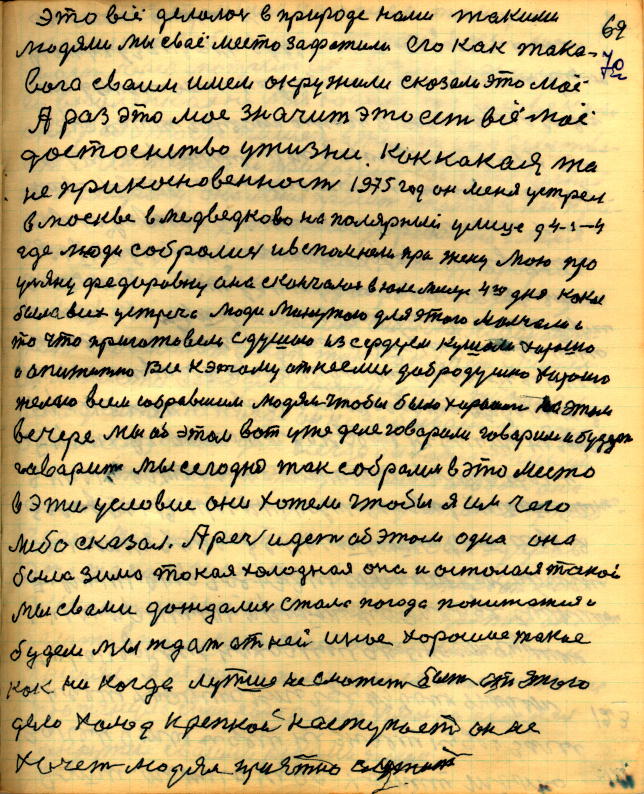 69
Это всё делалос в природе нами такими
70
людями мы своё место зафатили его как така-
вога своим имем окружили сказали это моё
А раз это мое значит это ест всё моё
достоенство у жизни. Как какая та
не прикосновенност 1975 год он меня устрел
в москве в медведково на полярный улице д 4-1-4
где люди собралис и вспомнели пра жену мою про
ульяну федоровну она скончалас в июле месице 4го дня какая
была в их устреча люди минутою для этого молчали и
то что приготовели с душою из сердцем кушали хорошо
и апититно Все к этому отнеслис добродушно хорошо
желаю всем собравшим людям чтобы было хорошо на этом
вечере мы об этом вот уже деле говорили говарим и будем
гаварит мы сегодно так собралис в это место
в эти условие они хотели чтобы я им чего
либо сказал. А реч идет об этом одна она
была зима такая холодная она и осталася такой
мы с вами дождалис стала погода понижатся и
будем мы ждат от ней иное хорошие такие
как ни когда лутше не сможет быт от этого
дела холод крепкой наступает он не
хочет людям приятно